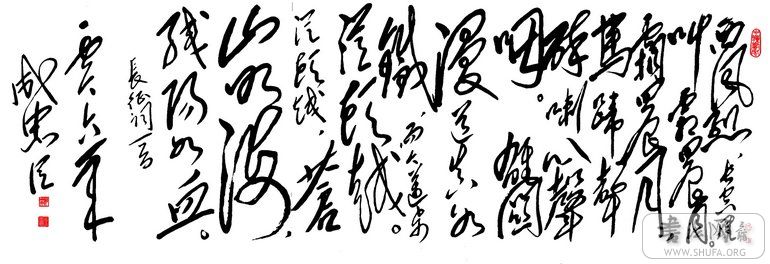 西风烈，长空雁
叫霜晨月。
霜晨月
马蹄声
碎，喇叭声
咽。雄关
漫道真如
铁，而今迈步
从头越。
从头越，苍
山如海，
残阳如血。
长征词一首
六年
WWW.SHUFA.ORG